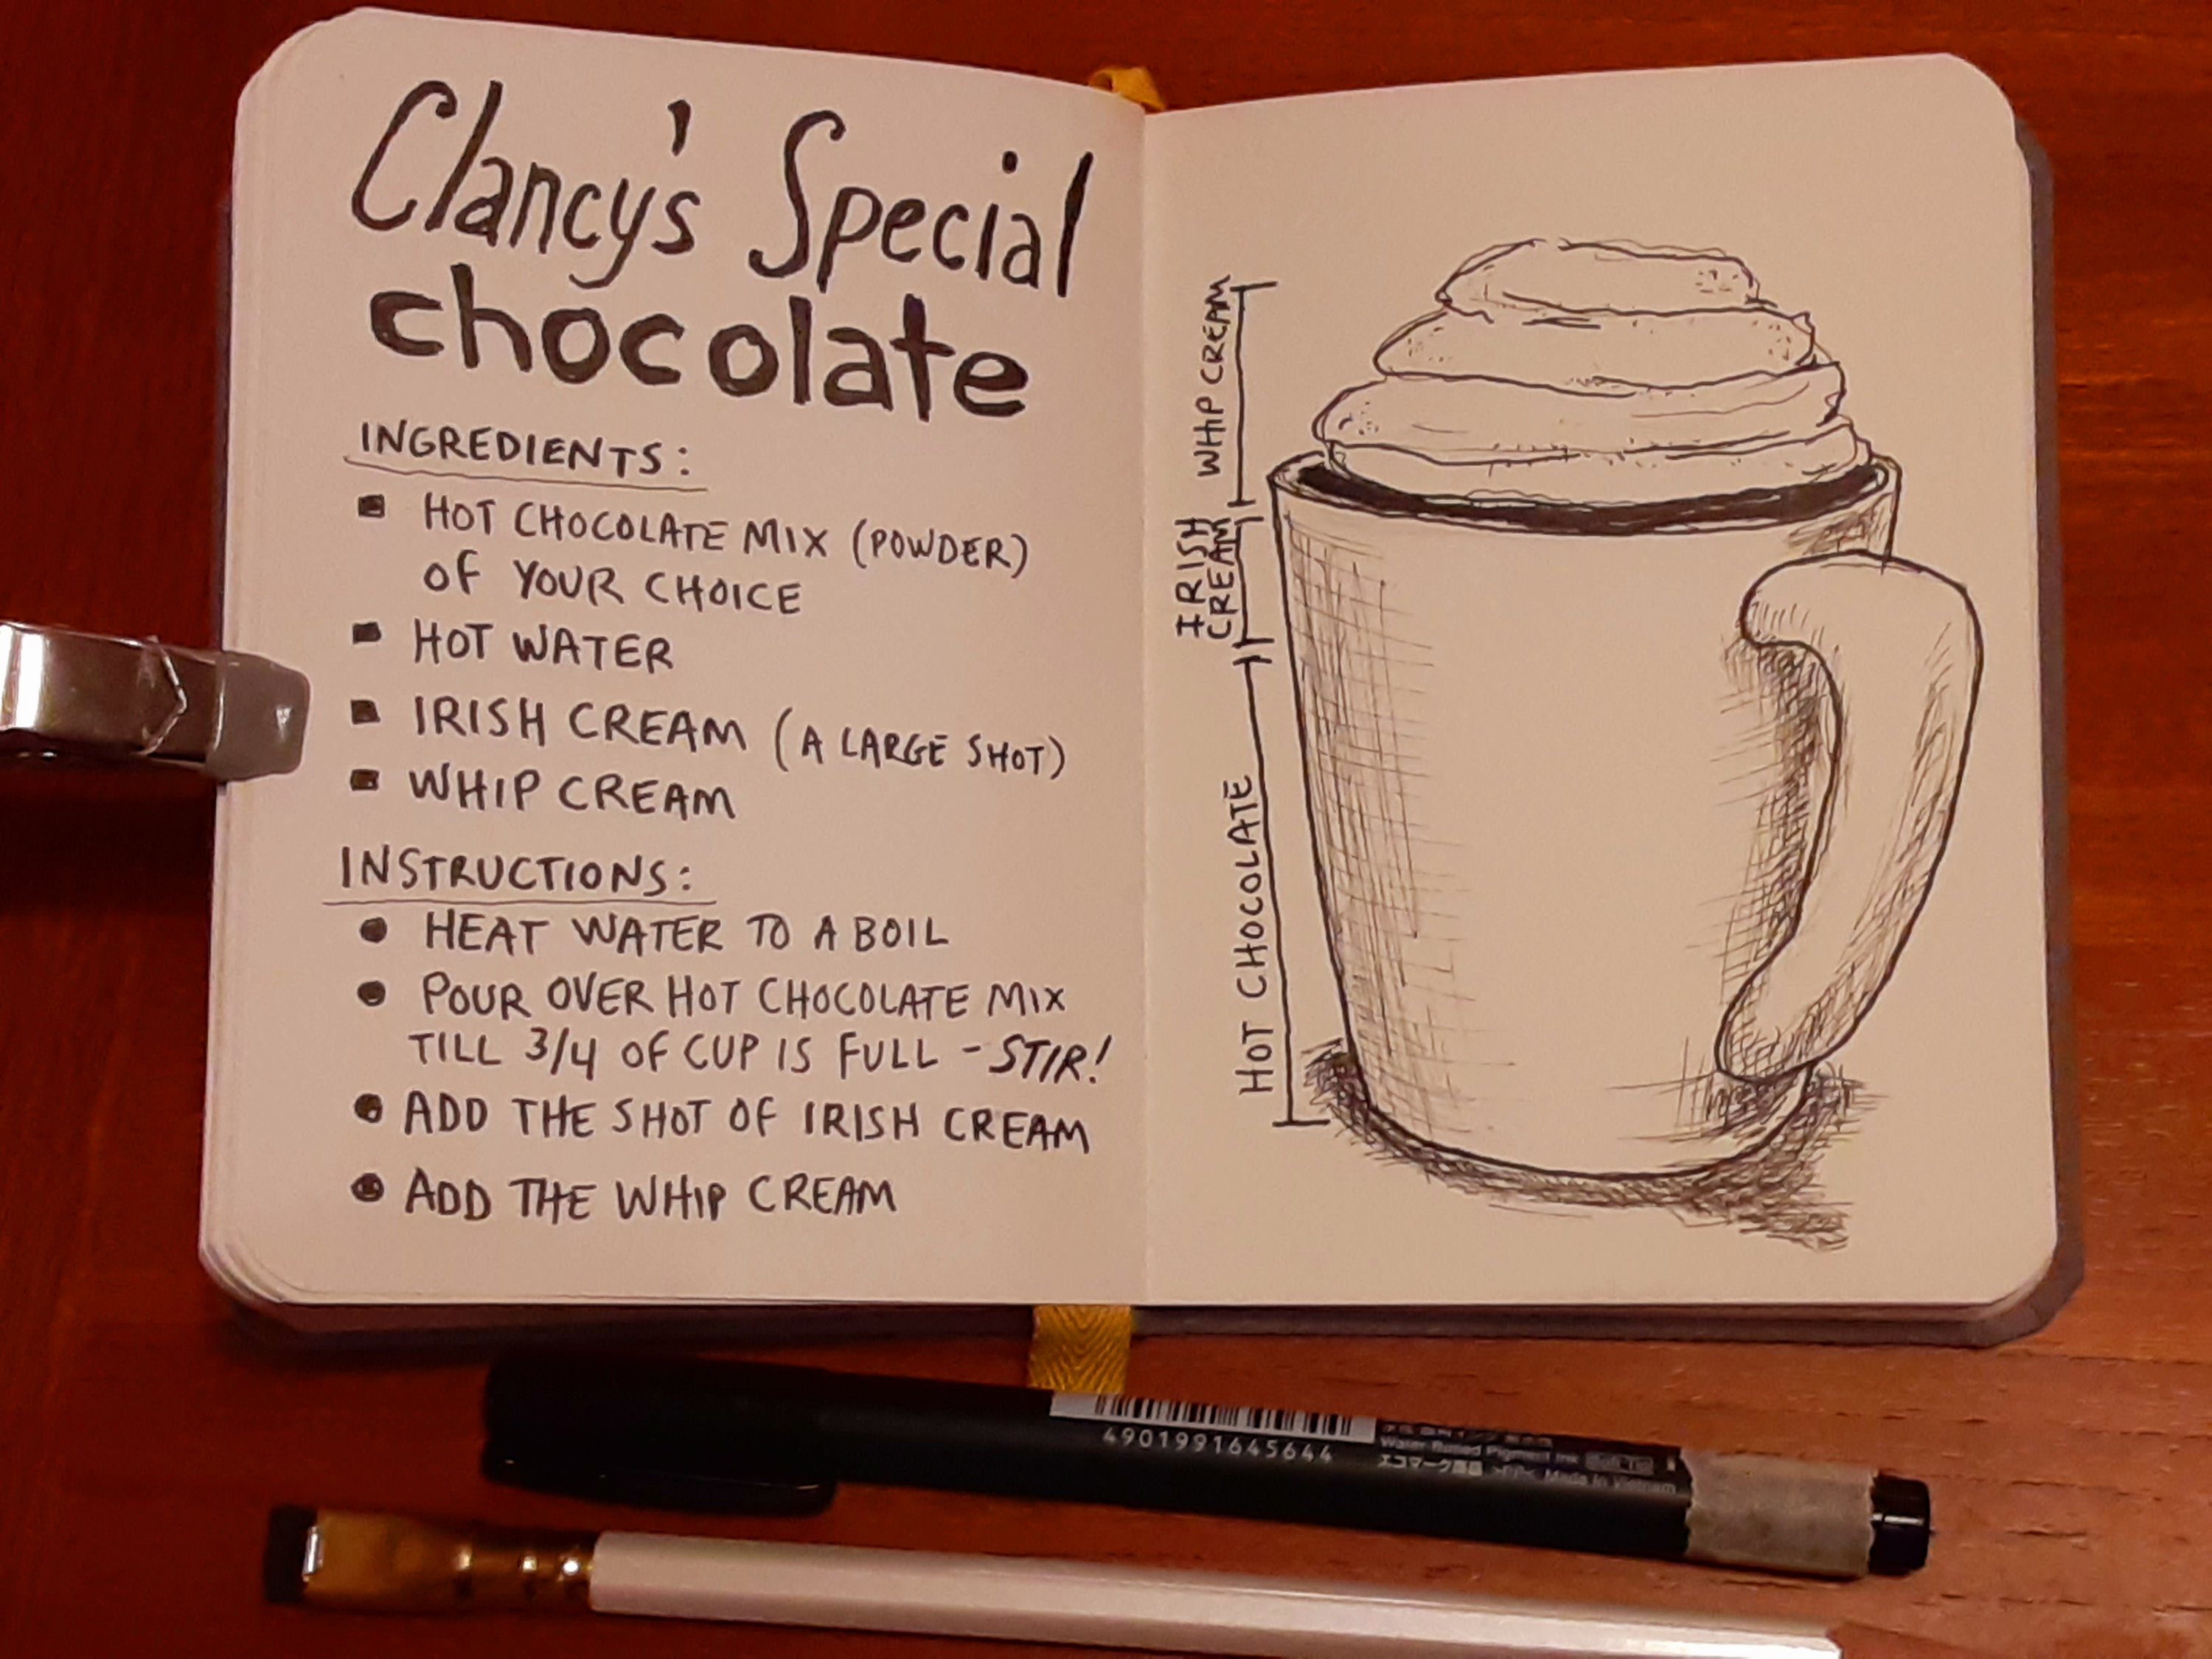 Clancy's Special
chocolate
INGREDIENTS:
HOT CHOCOLATE MIX (POWDER)
OF YOUR CHOICE
HOT WATER
IRISH CREAM (A LARGE SHOT)
WHIP CREAM
INSTRUCTIONS:
HEAT WATER TO A BOIL
POUR OVER HOT CHOCOLATE MIX
TILL 3/4 OF CUP IS FULL - STIR!
ADD THE SHOT OF IRISH CREAM
ADD THE WHIP CREAM
WHIP CREAM
IRISH
CREAM
HOT CHOCOLATE
4901991645644
Water Based Pigment Ink
エコマーク Made in Vietnam